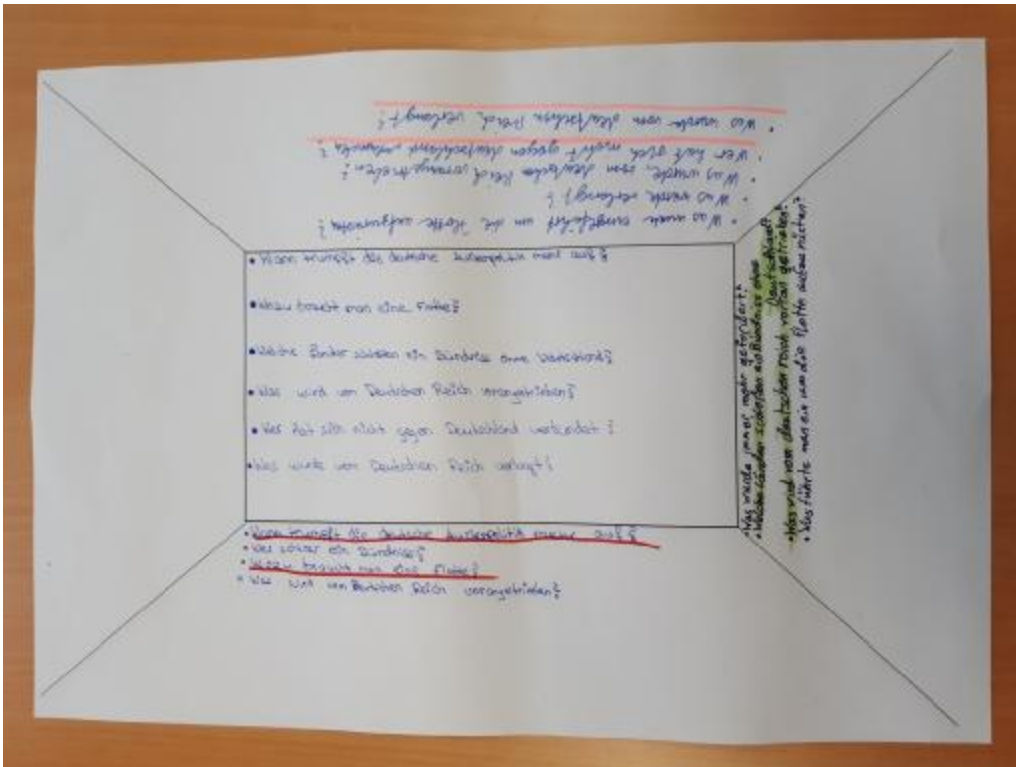 • Was wurde vom deutschen Reich verlangt?
• Wer hat sich nicht gegen deutschland verbündet?
• Was wurde vom deutschen Reich vorangetrieben?
• Was wurde verlangt?
• Was wurde eingeführt um die Flotte aufzurüsten?
• Wann trumpft die deutsche Aussenpolitik mehr auf?
• Wozu braucht man eine Flotte?
• Welche Länder ein Bündniss ohne Deutschland?
• Was wird vom Deutschen Reich vorangetrieben?
• Wer hat sich nicht gegen Deutschland verbündet?
• Was wurde vom Deutschen Reich verlagt?
• Wann trumpft die deutsche Aussenpolitik mehr auf?
• Wer ein Bündniss?
• Wozu braucht man eine Flotte?
• Was wird vom Deutschen Reich vorangetrieben?
• Was wurde immer mehr gefordert?
• Welche Länder ein Bündniss ohne
Deutschland?
• Was wird vom deutschen reich voran getrieben?
• Was führte man ein um die Flotte